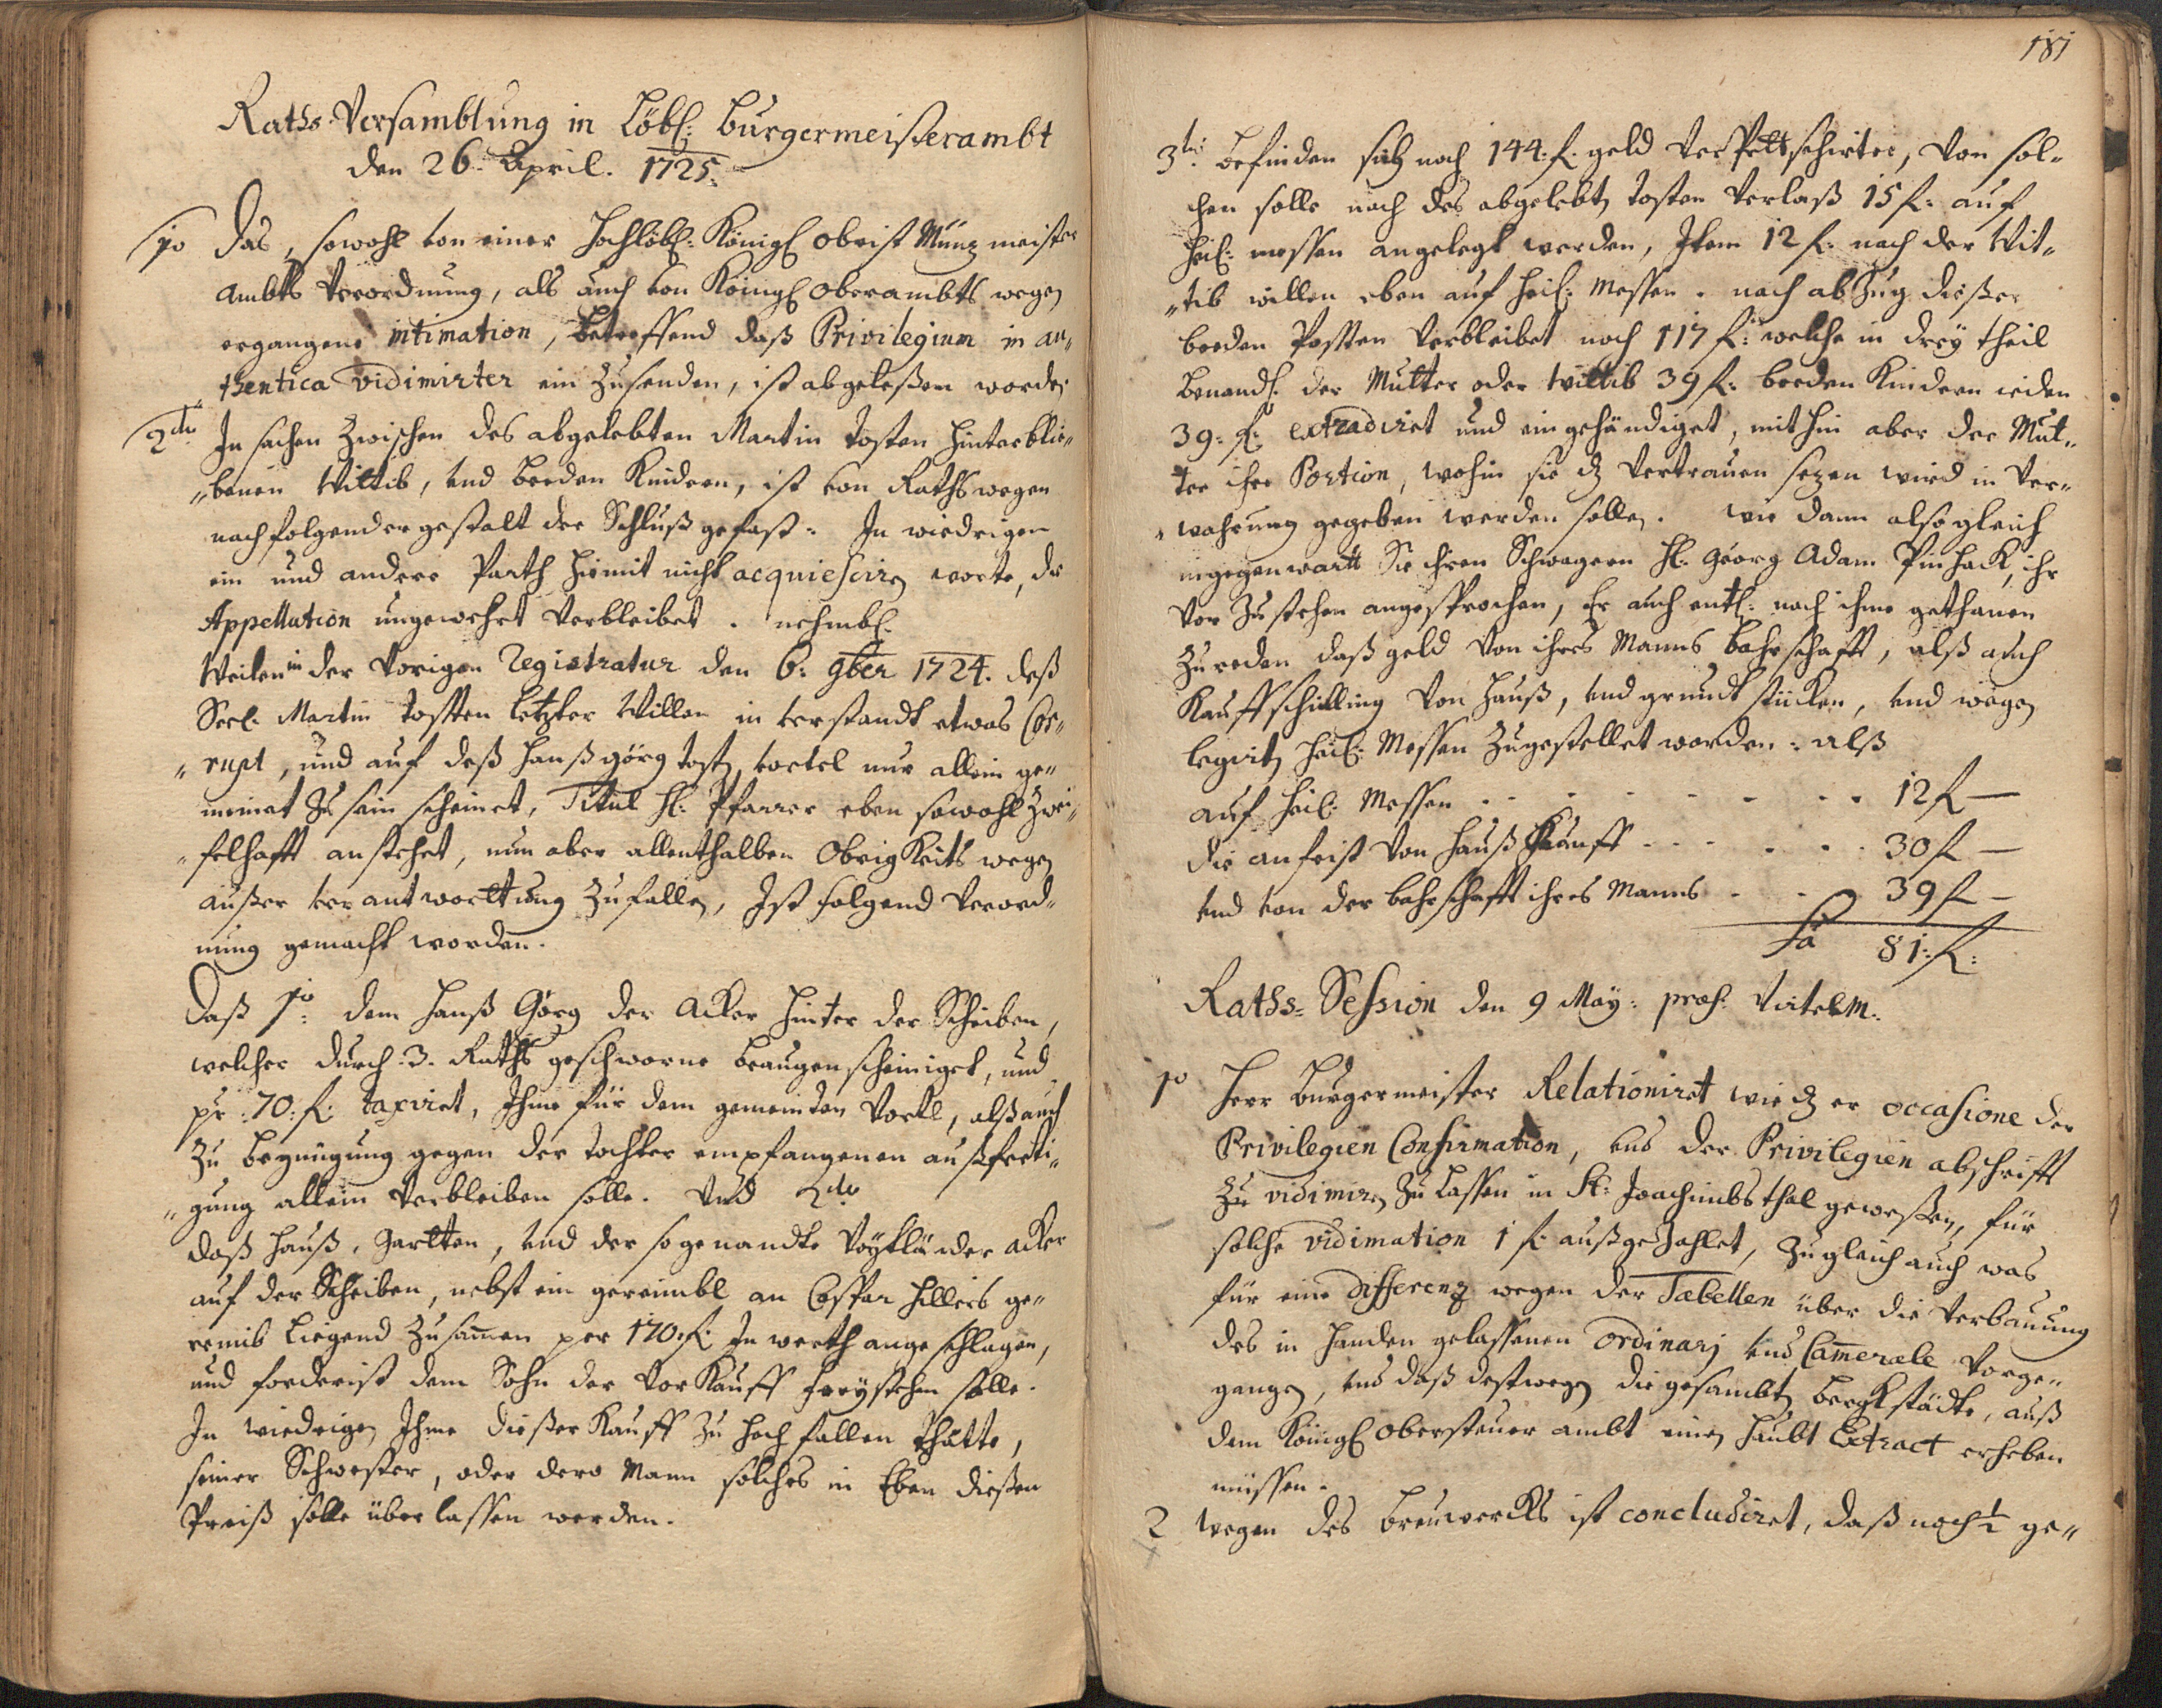 Raths Versamblung in Löbl: Burgermeisterambt
den 26. April. 1725.
1mo Das, sowohl von einer Hochlöbl: Königl Obrist Münzmeister
Ambts Verordnung, als auch von Königl Oberambts wegen
ergangene intimation, betreffend daß Privilegium in au„
„thentica vidimirter ein zusenden, ist abgeleßen worden
2do In sachen zwischen des abgelebten Martin Tosten hinterblie„
„benen Wittib, und beeden Kindern, ist von Raths wegen
nachfolgender gestalt der Schluß gefast: In wiedrigen
ein und andere Parth hiemit nicht acquiesciren worte, die
Appellation ungewehrt verbleibet. nehmbl.
Weilen in der vorigen Registratur den 6: 9ber 1724. deß
Seel. Martin Tosten letzter Willen in verstandt etwas Cor„
„rupt, und auf deß Hanß görg Tosten vortel nur allein ge„
meinet zu sein scheinet, Titul H: Pfarrer eben sowohl zwei„
„felhafft anstehet, nun aber allenthalben Obrigkeits wegen
außer verantworttung zufallen, Ist folgend Verord„
nung gemacht worden.
Daß 1mo: dem Hanß Görg der Acker hinter der Scheiben,
welcher durch 3. Raths geschworne beaugenscheiniget, und
pr: 70: f: taxiret, Ihme für dem gemeinden Vortl, alß auch
zu begnügung gegen der Tochter empfangenen außferti„
„gung allein verbleiben solle. Und 2do
daß Hauß, Gartten, und der sogenandte Voytländer Acker
auf der Scheiben, nebst ein gereimbl an Caspar Hillers ge„
remib liegend zusammen per 170: f: In werth angeschlagen,
und forderist dem Sohn der Vorkauff freystehen solle.
In wiedrigen Ihme dießer Kauff zu hoch fallen thätte,
seiner Schwester, oder dero Mann solches in Eben dießen
Preiß solle überlassen werden.
181
3tio: befinden sich noch 144. f. geld verpettschirter, von sol„
chen solle nach des abgelebten Tosten Verlaß 15 f: auf
heil: messen angelegt werden, Item 12 f: nach der Wit„
„tib willen eben auf heil: Messen. nach abzug dießer
beeden Posten verbleibet noch 117 f: welche in drey theil
benandl. der Mutter oder Wittib 39 f: beeden Kindern ieden
39: f: extradiret und eingehändiget, mithin aber der Mut„
ter ihre Portion, wohin sie dz Vertrauen sezen wird in Ver„
„wahrung gegeben werden sollen. wie dann also gleich
in gegenwartt Sie ihren Schwagern H: Georg Adam Pinhack, ihr
vor zustehen angesprochen, Er auch entl: nach ihme gethanen
zureden daß geld von ihres Manns bahrschafft, alß auch
Kauffschilling von Hauß, und grundtstücken, und wegen
legirten heil: Messen zugestellet worden: alß
auf heil: Messen . . . . . . . 12 f —
die anfrist von Hauß Kauff . . . . . 30 f —
und von der bahrschafft ihres Manns . . 39 f —
Sa 81: f:
Raths= Session den 9 May: præs: Virtelm:
1mo Herr Burgermeister Relationiret wie dz er occasione der
Privilegien Confirmation, und der Privilegien abschrifft
zu vidimiren zu lassen in St: Joachimbsthal geweßen, für
solche vidimation 1 f: außgezahlet, zugleich auch was
für eine differenz wegen der Tabellen über die Verbauung
des in Handen gelassenen Ordinarj und Camerale vorge„
gangen, und daß deßwegen die gesambten bergkstädte, auß
dem Königl Obersteuer ambt einen Haubt Extract erheben
müssen.
2 Wegen des breuwercks ist concludiret, daß noch ½ ge„